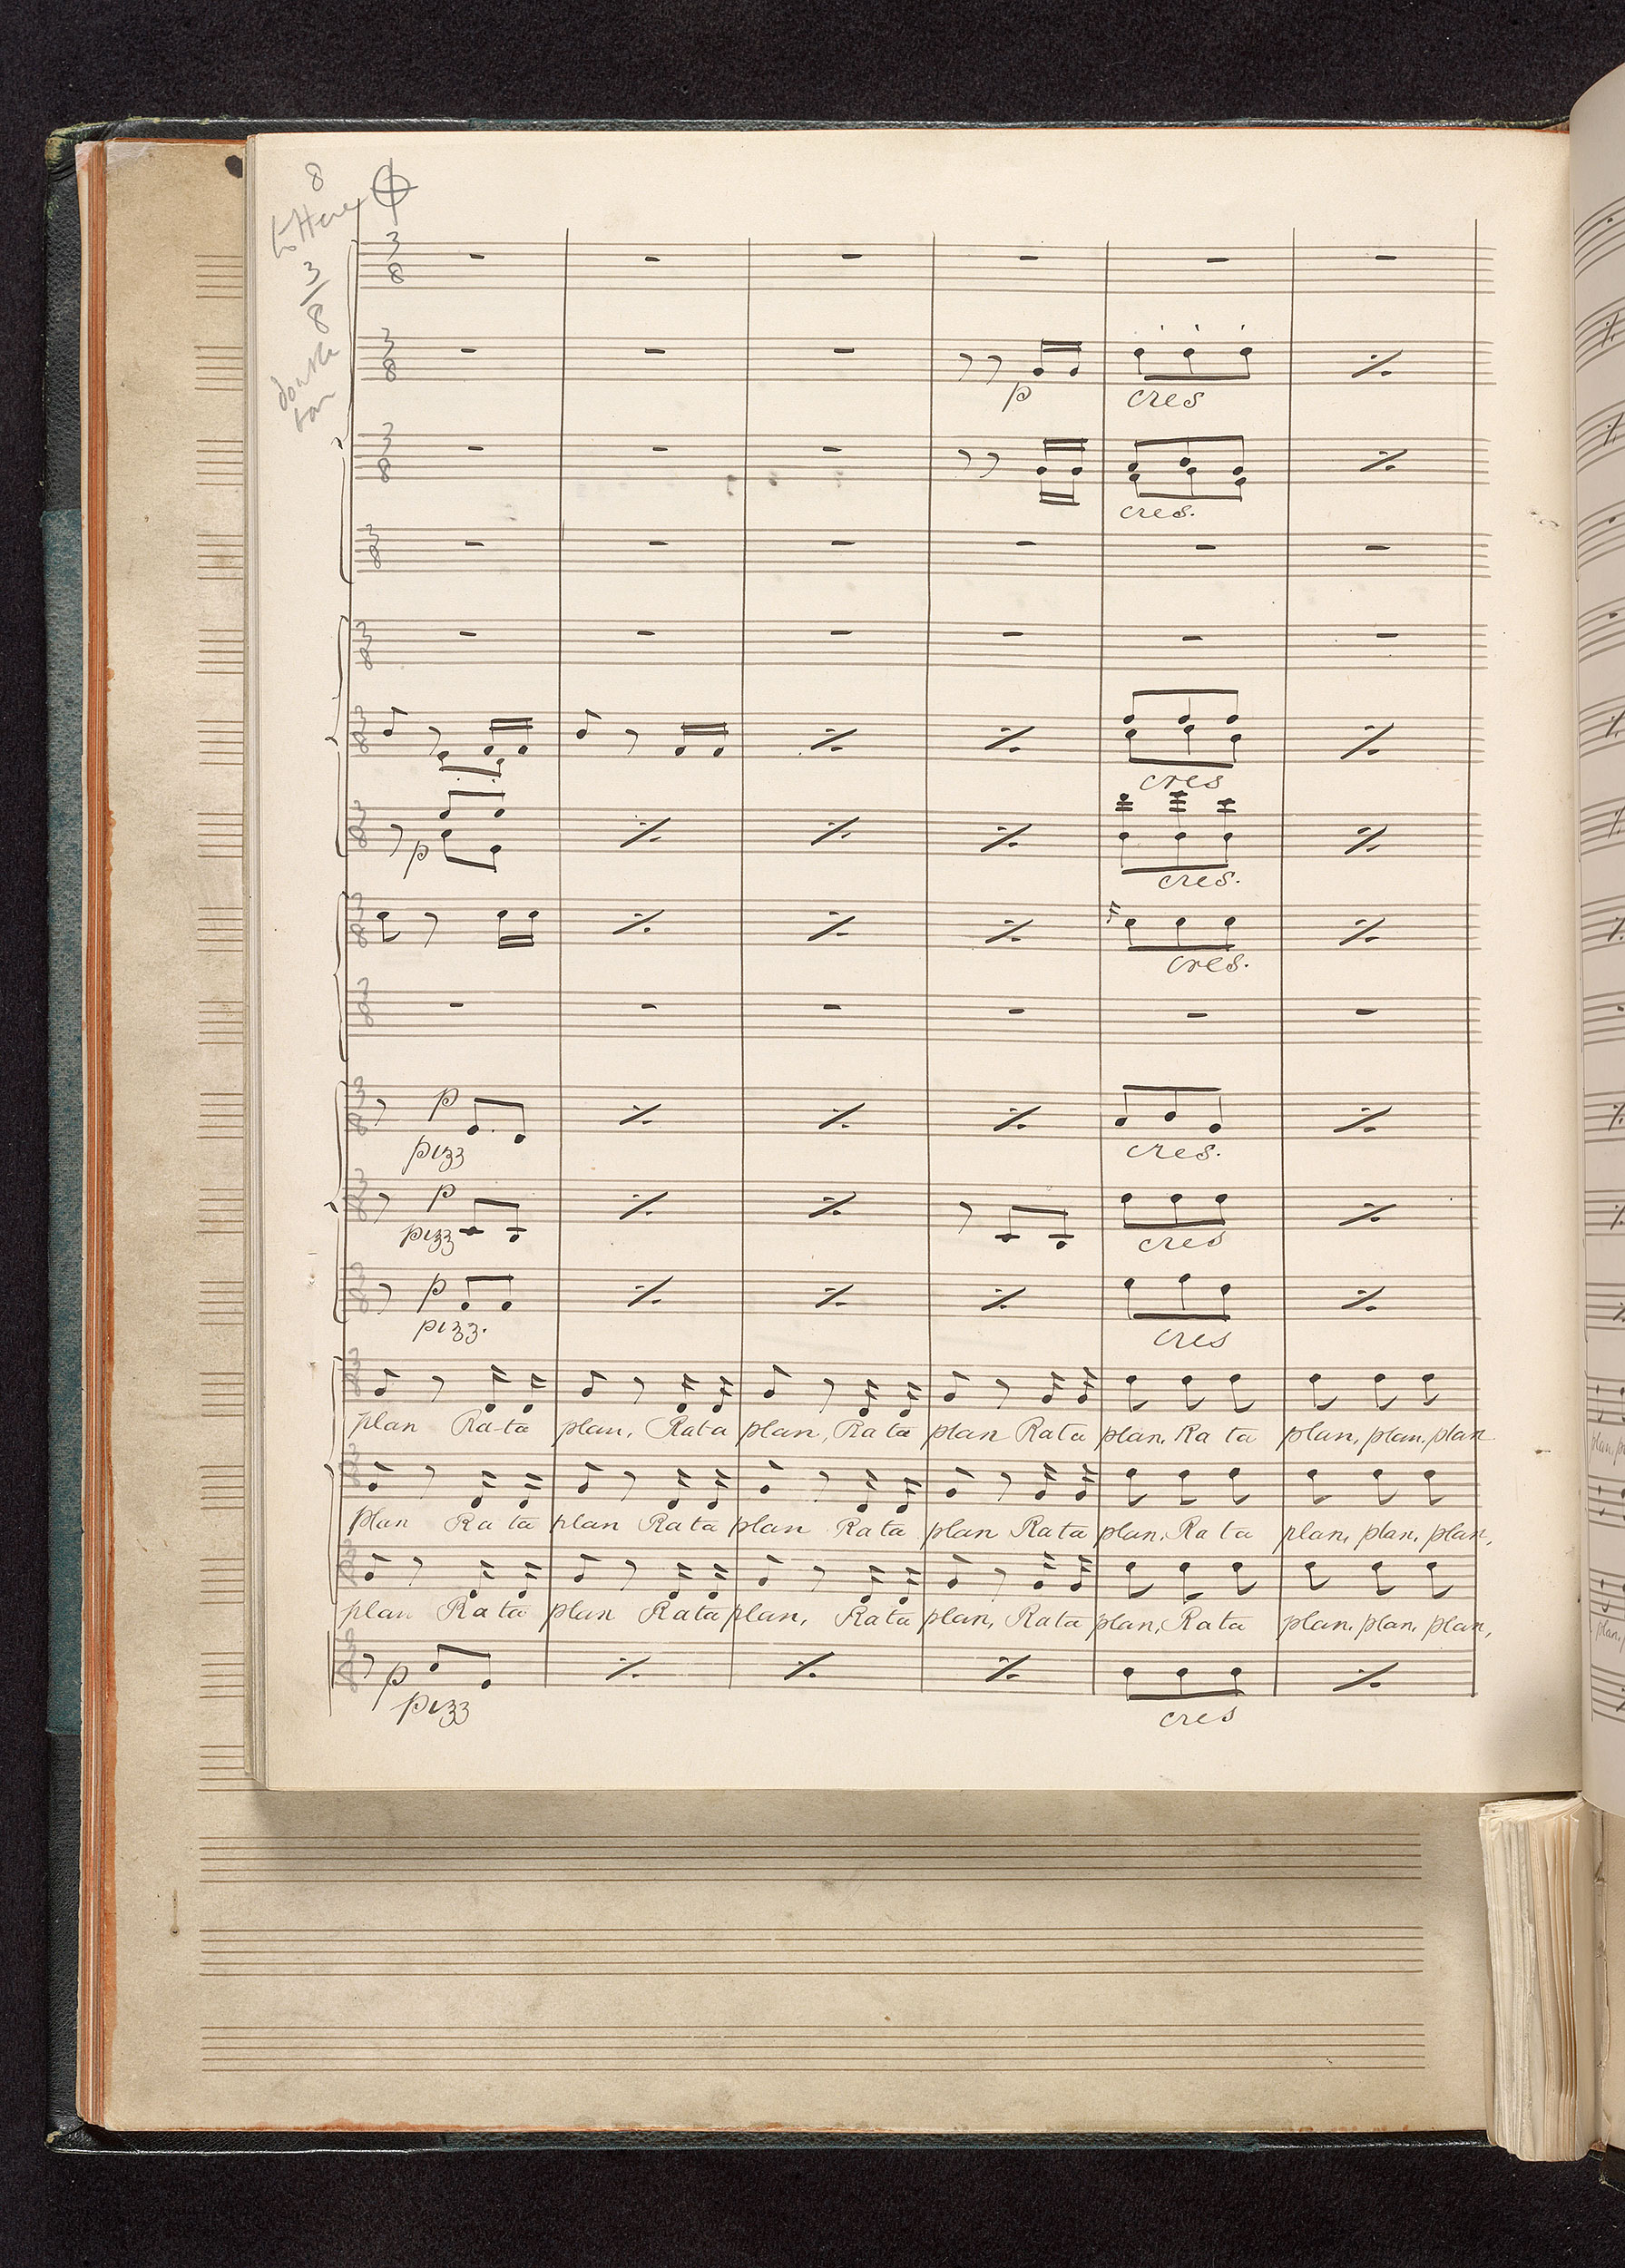 8
to Here
3
8
double
bar
3
8
3
8
p cres
3
8
cres.
3
8
3
8
3
8
cres
3
8
p cres.
3
8
cres.
3
8
3
8
p
pizz cres.
3
8
p
pizz cres
3
8
p
pizz. cres
3
8
plan Ra-ta plan, Rata plan, Rata plan Rata plan, Ra ta plan, plan, plan
3
8
plan Ra ta plan Ra ta plan Ra ta plan Rata plan, Ra ta plan, plan, plan,
3
8
plan Ra ta plan Rata plan, Rata plan, Rata plan, Rata plan, plan, plan,
3
8
p
pizz cres